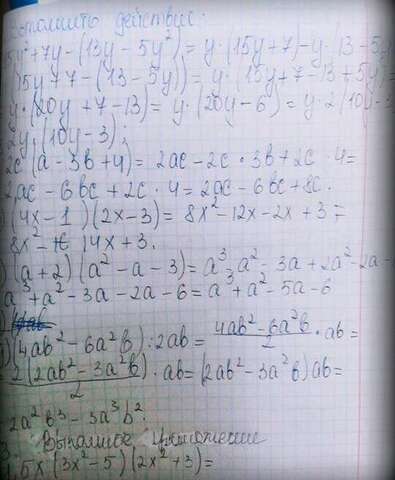 действия:
5y²+7y-(13y-5y²)=y·(15y+7)-y·(13-5y
15y+7-(13-5y))=y·(15y+7-13+5y)=
y·(20y+7-13)=y·(20y-6)=y·2(10y-3
2y(10y-3);
2c(a-3b+4)=2ac-2c·3b+2c·4=
2ac-6bc+2c·4=2ac-6bc+8c.
)(4x-1)(2x-3)=8x²-12x-2x+3=
8x²-14x+3.
)(a+2)(a²-a-3)=a³-a²-3a+2a²-2a-
a³+a²-3a-2a-6=a³+a²-5a-6
)(4ab²-6a²b):2ab=4ab²-6a²b/2·ab=
2(2ab²-3a²b)/2·ab=(2ab²-3a²b)ab=
2a²b³-3a³b².
3. Выполное
1,5x(3x²-5)(2x²+3)=